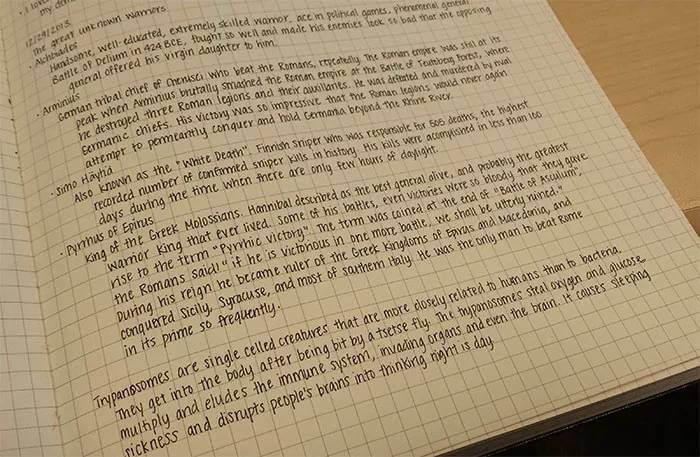 The great unknown warriors.
· Alchibiades
Handsome, well-educated, extremely skilled warrior, ace in political games, phenomenal general
Battle of Delium in 424 BCE, fought so well and made his enemies look so bad that the opposing
general offered his virgin daughter to him.
· Arminius
German tribal chief of Cherusci who beat the Romans, repeatedly. The Roman empire was still at its
peak when Arminius brutally smashed the Roman empire at the Battle of Teutoberg Forest, where
he destroyed three Roman legions and their auxiliaries. He was defeated and murdered by rival
Germanic chiefs. His victory was so impressive that the Roman legions would never again
attempt to permeantly conquer and hold Germania beyond the Rhine River.
· Simo Häyhä
Also known as the "White Death". Finnish sniper who was responsible for 505 deaths, the highest
recorded number of confirmed sniper kills in history. His kills were acomplished in less than 100
days during the time when there are only few hours of daylight.
· Pyrrhus of Epirus
King of the Greek Molossians. Hannibal described as the best general alive, and probably the greatest
warrior King that ever lived. Some of his battles, even victories were so bloody that they gave
rise to the term "Pyrrhic victory". The term was coined at the end of "Battle of Asculum",
the Romans said: "if he is victorious in one more battle, we shall be utterly ruined."
During his reign he became ruler of the Greek Kingdoms of Epirus and Macedonia, and
conquered Sicily, Syracuse, and most of southern Italy. He was the only man to beat Rome
in its prime so frequently.
Trypanosomes are single celled creatures that are more closely related to humans than to bacteria.
They get into the body after being bit by a tsetse fly. The trypanosomes steal oxygen and glucose
multiply and eludes the immune system, invading organs and even the brain. It causes sleeping
sickness and disrupts people's brains into thinking night is day.